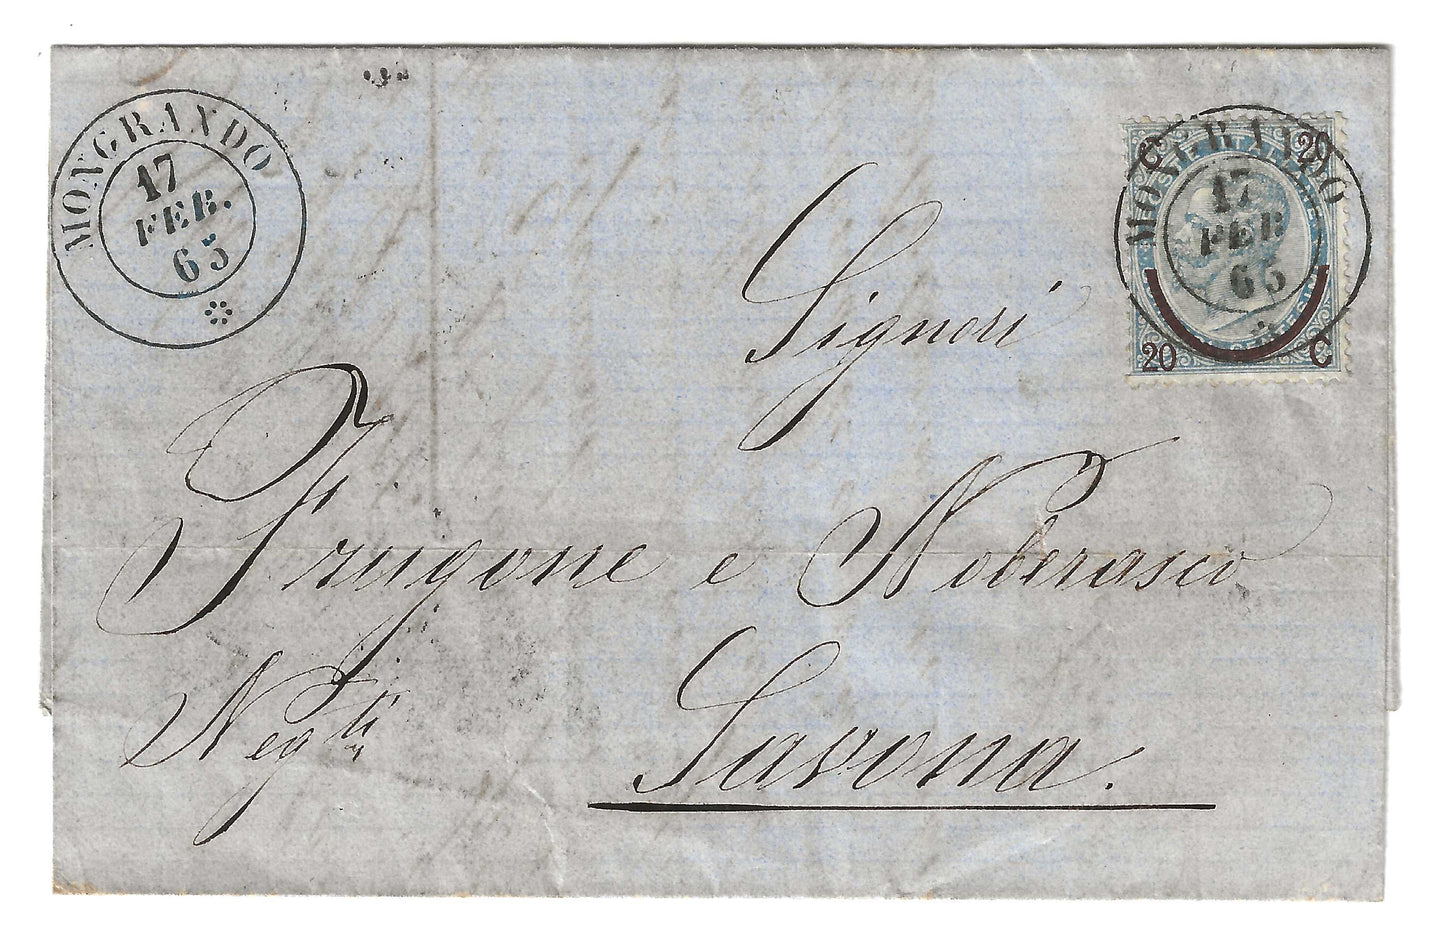 MONGRANDO
17
FEB.
65
MONGRANDO
17
FEB
65
C 20
20 C
Signori
Frugone e Noberasco
Negti
Savona.